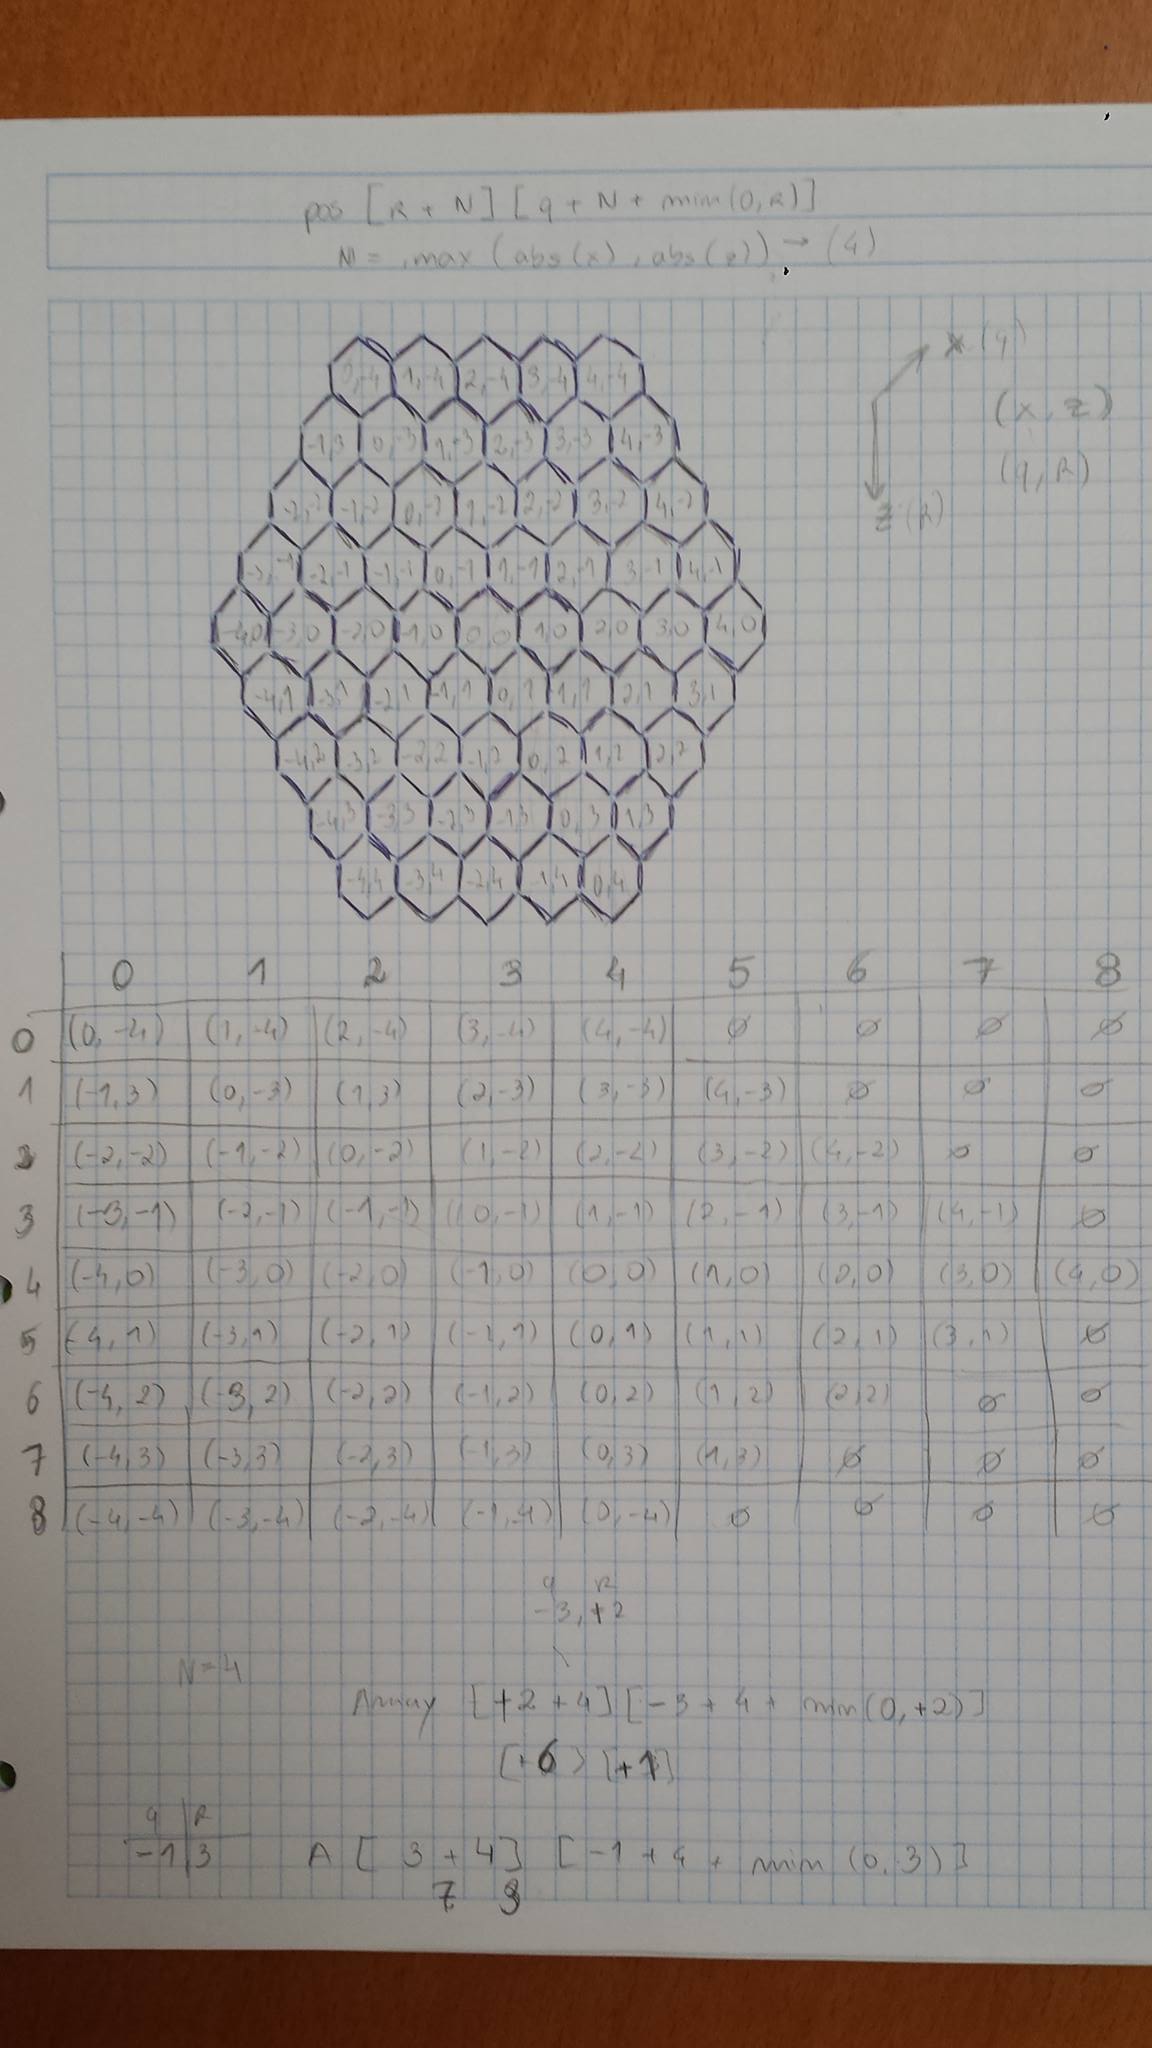 pos [R + N] [q + N + min(0,R)]
N = max (abs(x), abs(z)) → (4)
x (q)
(x, z)
(q, R)
z (R)
0,-4 1,-4 2,-4 3,-4 4,-4
-1,3 0,-3 1,-3 2,-3 3,-3 4,-3
-2,-2 -1,-2 0,-2 1,-2 2,-2 3,-2 4,-2
-3,-1 -2,-1 -1,-1 0,-1 1,-1 2,-1 3,-1 4,-1
-4,0 -3,0 -2,0 -1,0 0,0 1,0 2,0 3,0 4,0
-4,1 -3,1 -2,1 -1,1 0,1 1,1 2,1 3,1
-4,2 -3,2 -2,2 -1,2 0,2 1,2 2,2
-4,3 -3,3 -2,3 -1,3 0,3 1,3
-4,4 -3,4 -2,4 -1,4 0,4
0 1 2 3 4 5 6 7 8
0 (0,-4) (1,-4) (2,-4) (3,-4) (4,-4) ∅ ∅ ∅ ∅
1 (-1,3) (0,-3) (1,3) (2,-3) (3,-3) (4,-3) ∅ ∅ ∅
2 (-2,-2) (-1,-2) (0,-2) (1,-2) (2,-2) (3,-2) (4,-2) ∅ ∅
3 (-3,-1) (-2,-1) (-1,-1) (0,-1) (1,-1) (2,-1) (3,-1) (4,-1) ∅
4 (-4,0) (-3,0) (-2,0) (-1,0) (0,0) (1,0) (2,0) (3,0) (4,0)
5 (-4,1) (-3,1) (-2,1) (-1,1) (0,1) (1,1) (2,1) (3,1) ∅
6 (-4,2) (-3,2) (-2,2) (-1,2) (0,2) (1,2) (2,2) ∅ ∅
7 (-4,3) (-3,3) (-2,3) (-1,3) (0,3) (1,3) ∅ ∅ ∅
8 (-4,-4) (-3,-4) (-2,-4) (-1,-4) (0,-4) ∅ ∅ ∅ ∅
q R
-3,+2
N=4
Array [+2+4] [-3+4+ min(0,+2)]
[+6] [+1]
q R
-1 3 A [3+4] [-1+4+ min (0,3)]
7 3